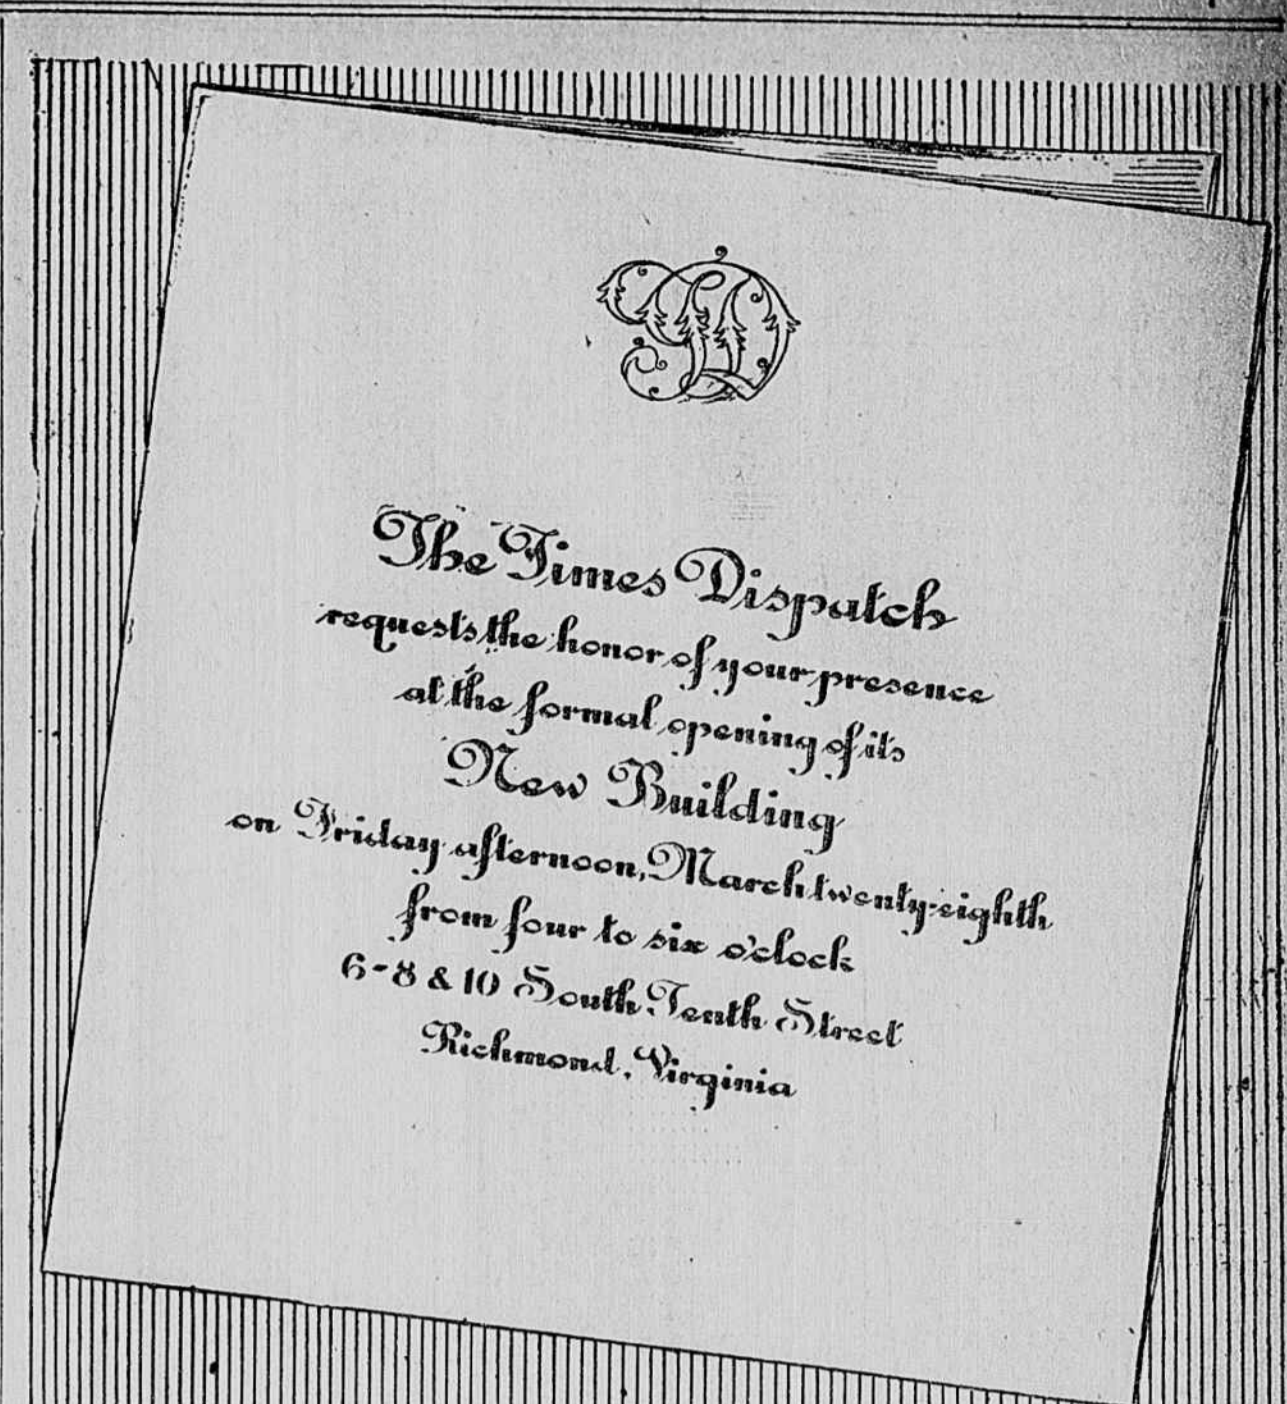 TD
The Times Dispatch
requests the honor of your presence
at the formal opening of its
New Building
on Friday afternoon, March twenty-eighth
from four to six o'clock
6-8 & 10 South Tenth Street
Richmond, Virginia